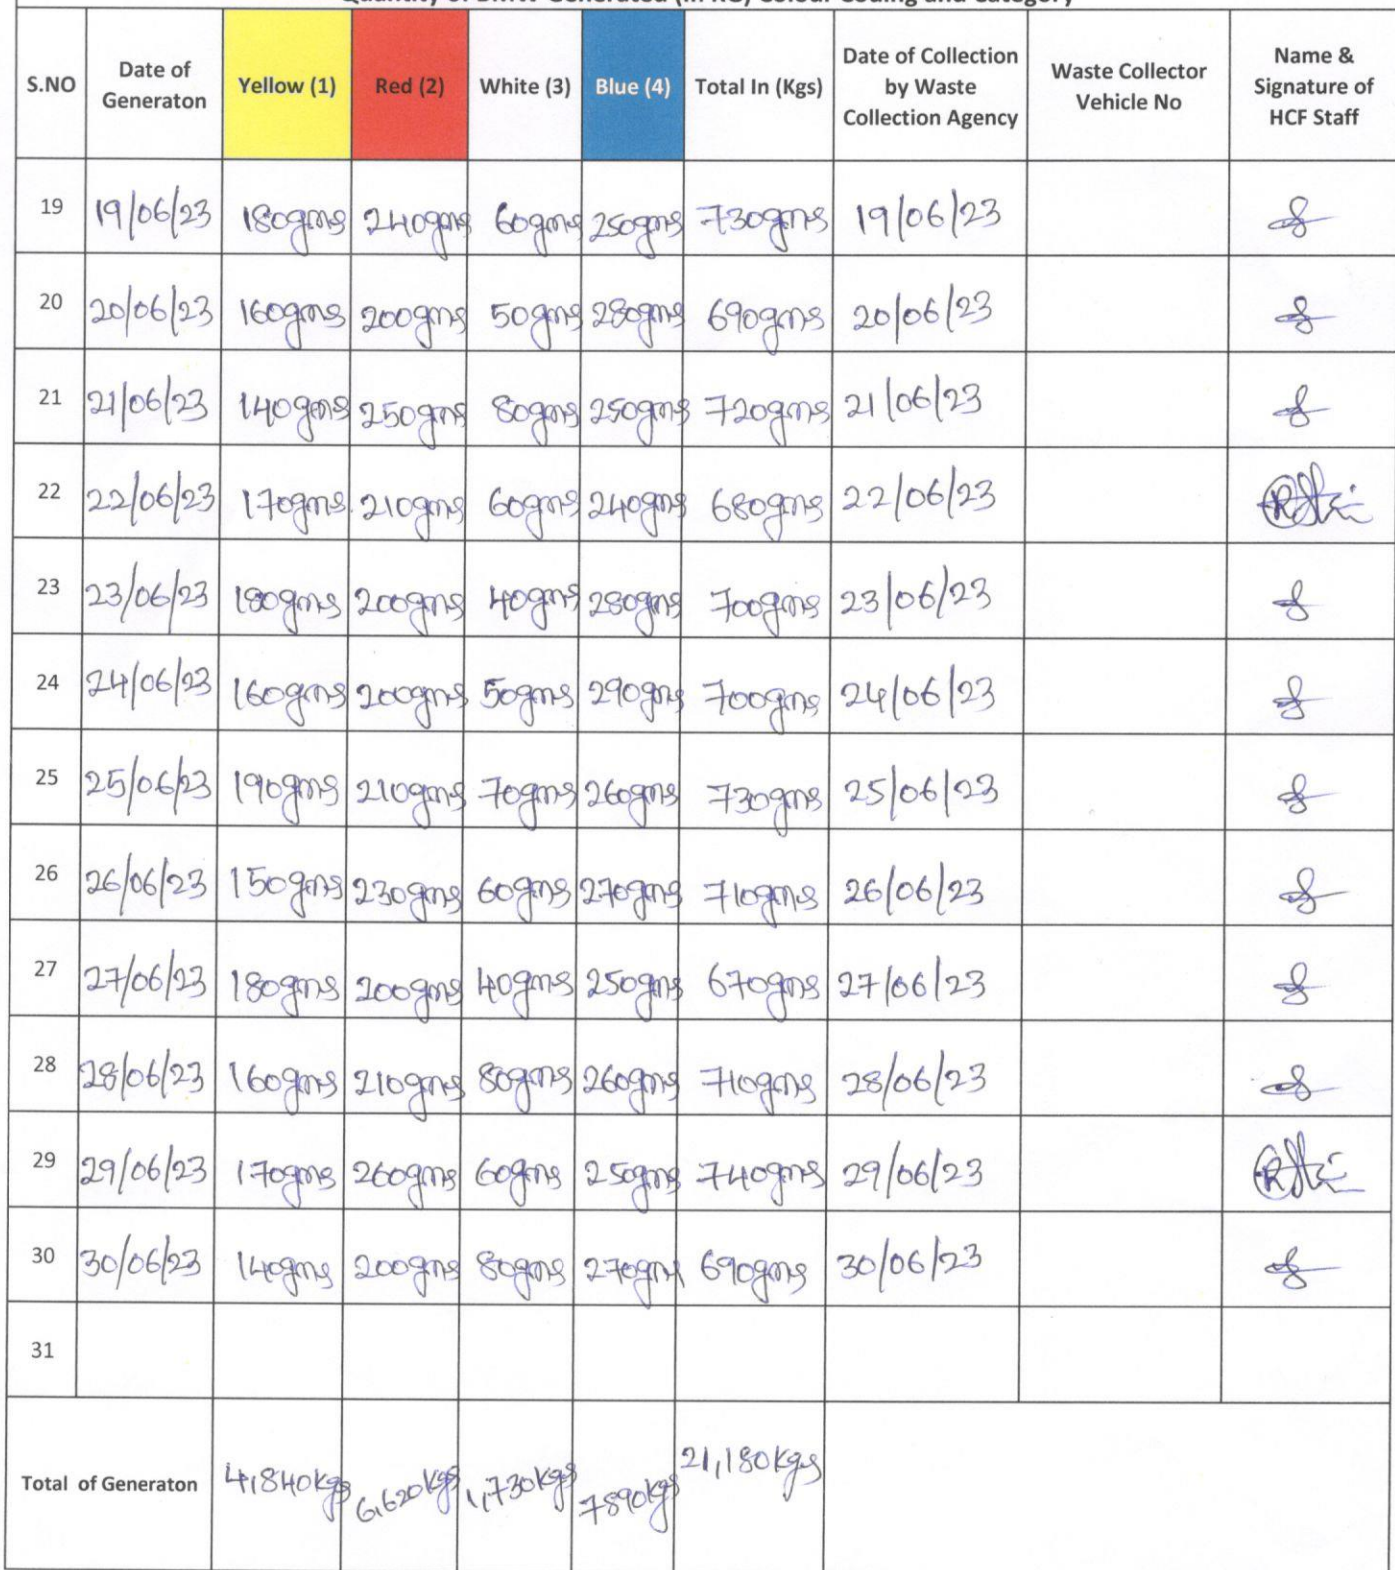 Quantity of BMW Generated (in KG) Colour Coding and Category
S.NO Date of Generaton Yellow (1) Red (2) White (3) Blue (4) Total In (Kgs) Date of Collection by Waste Collection Agency Waste Collector Vehicle No Name & Signature of HCF Staff
19 19/06/23 180gms 240gms 60gms 250gms 730gms 19/06/23
20 20/06/23 160gms 200gms 50gms 280gms 690gms 20/06/23
21 21/06/23 140gms 250gms 80gms 250gms 720gms 21/06/23
22 22/06/23 170gms 210gms 60gms 240gms 680gms 22/06/23
23 23/06/23 180gms 200gms 40gms 280gms 700gms 23/06/23
24 24/06/23 160gms 200gms 50gms 290gms 700gms 24/06/23
25 25/06/23 190gms 210gms 70gms 260gms 730gms 25/06/23
26 26/06/23 150gms 230gms 60gms 270gms 710gms 26/06/23
27 27/06/23 180gms 200gms 40gms 250gms 670gms 27/06/23
28 28/06/23 160gms 210gms 80gms 260gms 710gms 28/06/23
29 29/06/23 170gms 260gms 60gms 250gms 740gms 29/06/23
30 30/06/23 140gms 200gms 80gms 270gms 690gms 30/06/23
31
Total of Generaton 4,840kgs 6,620kgs 1,730kgs 7890kgs 21,180kgs